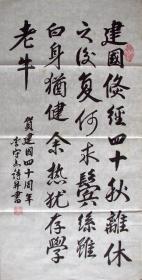 建國倏經四十秋離休
之後复何求鬓絲雖
白身猶健余热犹存學
老牛
賀建國四十周年
李守詩并書